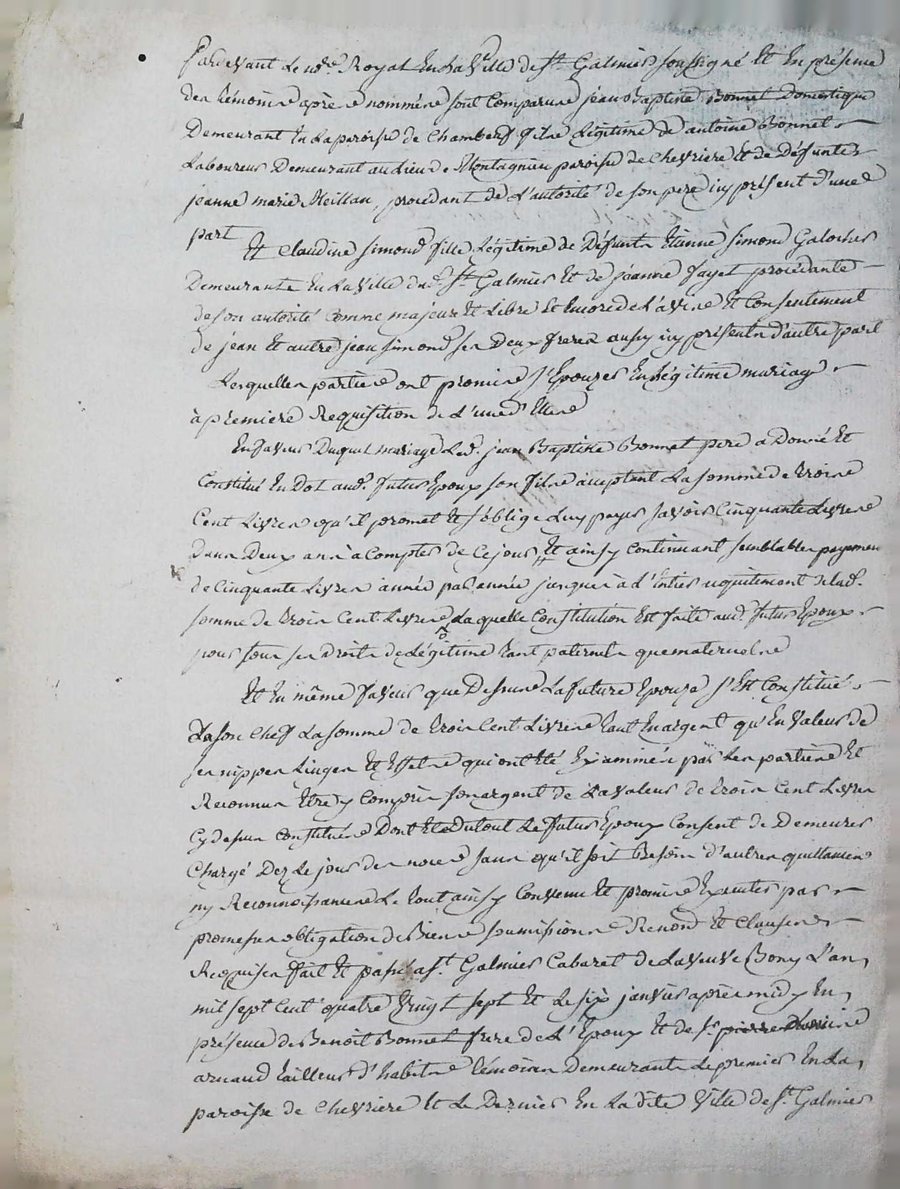 Pardevant Le no.re Royal En La Ville de S.t Galmier soussigné Et En présence
des témoins après nommés sont Comparus jean Baptiste Bonnet Domestique
Demeurant En La paroisse de Chambeuf fils Légitime de antoine Bonnet
Laboureur Demeurant au Lieu de Montagnieu paroisse de Chevriere Et de Défunte
jeanne marie Meillan, procédant de L'autorité de son pere icy présent d'une
part
Et Claudine Simond fille Légitime de Défunt Etienne Simond Galocher
Demeurante En La Ville dud. S.t Galmier Et de jeanne fayet procédante
de son autorité Comme majeure Et Libre Et Encore de L'avis Et Consentement
de jean Et autre jean Simond ses Deux freres aussy icy présents d'autre part
Lesquelles parties ont promis s'Epouser En Légitime mariage
à premiere Requisition de L'une d'Elles
En faveur Duquel mariage Led. jean Baptiste Bonnet pere a Donné Et
Constitué En Dot aud. futur Epoux son fils acceptant La somme de trois
Cent Livres qu'il promet Et s'oblige Luy payer savoir Cinquante Livres
dans Deux ans à Compter de Ce jour, Et ainsy Continuant semblables payemens
de Cinquante Livres année par année jusques à L'Entier acquittement de Lad.
somme de trois Cent Livres La quelle Constitution Est faite aud. futur Epoux
pour tous ses droits de Légitime tant paternels que maternels
Et En même faveur que Dessus La future Epouse s'Est Constitué
De son Chef La somme de trois Cent Livres tant En argent qu'En Valeur de
ses nippes Linges Et Effets qui ont Eté Examinés par Les parties Et
Reconnus Etre y Compris son argent de La Valeur de trois Cent Livres
Cy dessus Constitués Dont Et Du tout Le futur Epoux Consent de Demeurer
Chargé Dez Le jour des noces sans qu'il soit Besoin d'autres quittances
ny Reconnoissances Le tout ainsy Convenu Et promis Executer par
promesses obligation de Biens soumissions Renon.d Et Clauses
Requises fait Et passé a S.t Galmier Cabaret de La veuve Bony L'an
mil sept Cent quatre Vingt sept Et Le six janvier après midy En
présence de Benoit Bonnet frere de L'Epoux Et de S.r
arnaud tailleur d'habits témoins Demeurants Le premier En La
paroisse de Chevriere Et Le Dernier En La dite Ville de S.t Galmier